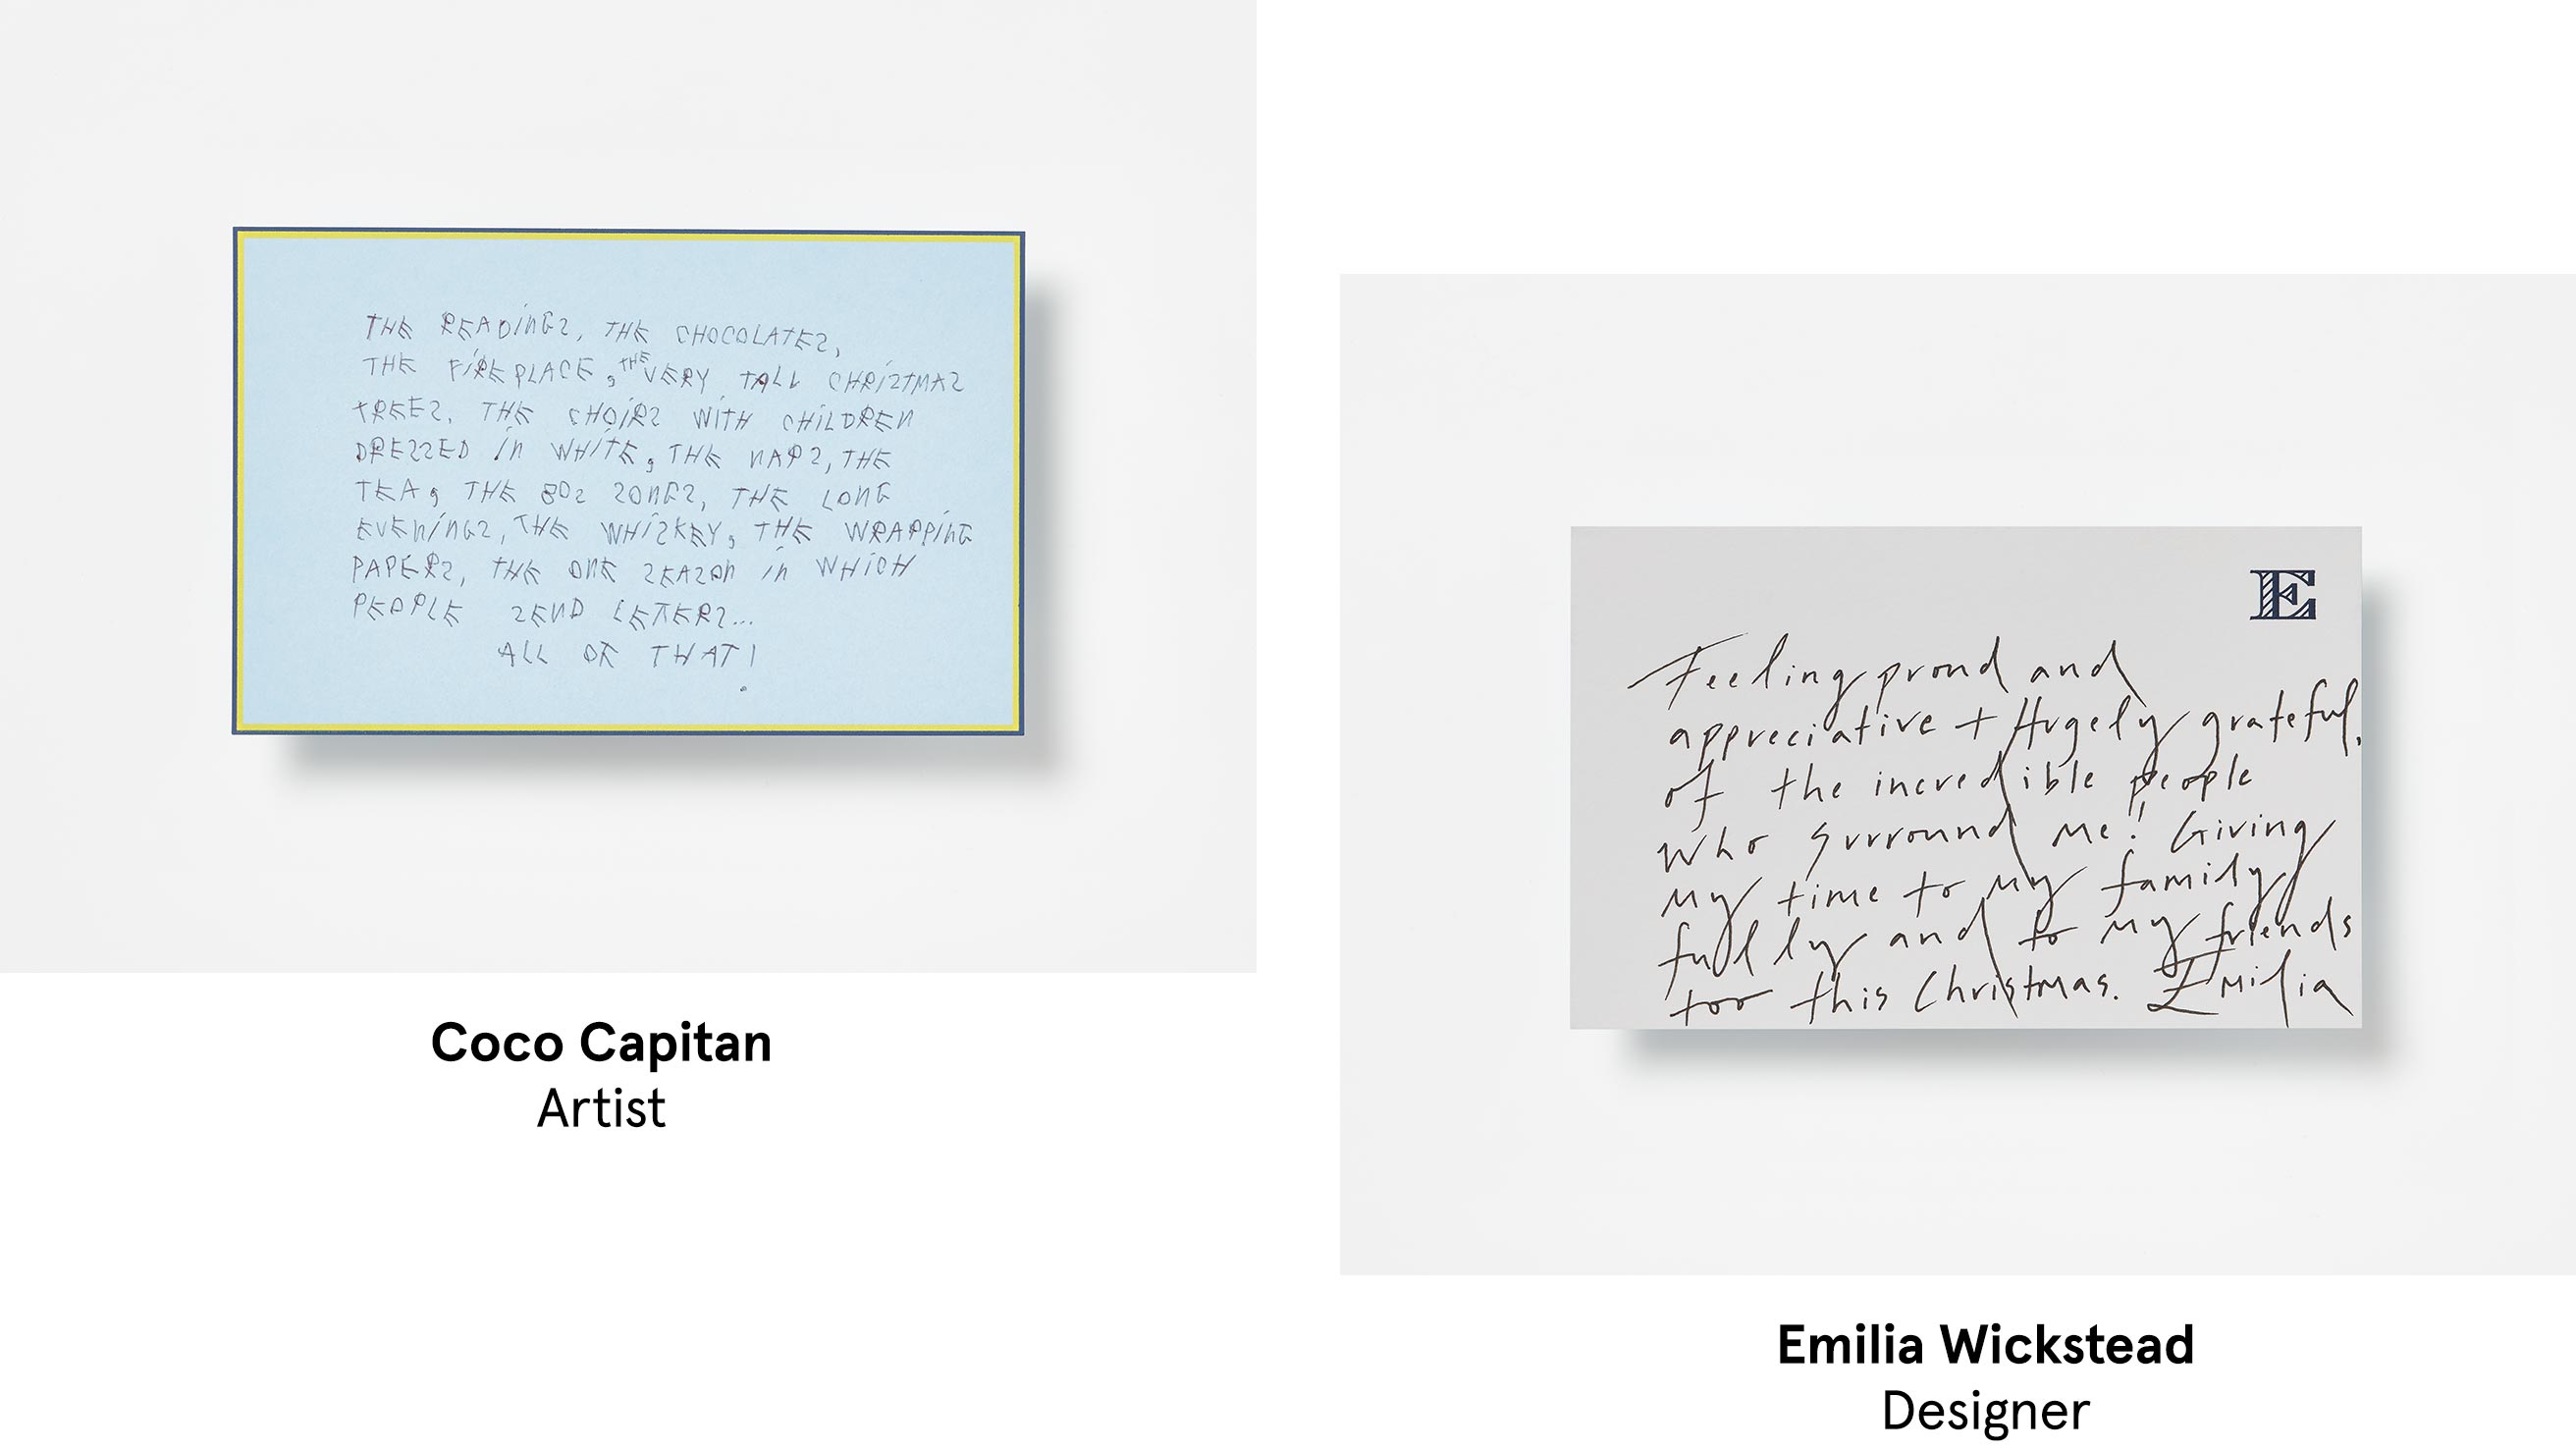 THE READINGS, THE CHOCOLATES,
THE FIREPLACE, THE VERY TALL CHRISTMAS
TREES, THE CHOIRS WITH CHILDREN
DRESSED IN WHITE, THE NAPS, THE
TEA, THE 80s SONGS, THE LONG
EVENINGS, THE WHISKEY, THE WRAPPING
PAPERS, THE ONE SEASON IN WHICH
PEOPLE SEND LETERS...
ALL OF THAT!
Coco Capitan
Artist
E
Feeling proud and
appreciative + Hugely grateful,
of the incredible people
who surround me! Giving
my time to my family
fully and to my friends
too this Christmas. Emilia
Emilia Wickstead
Designer